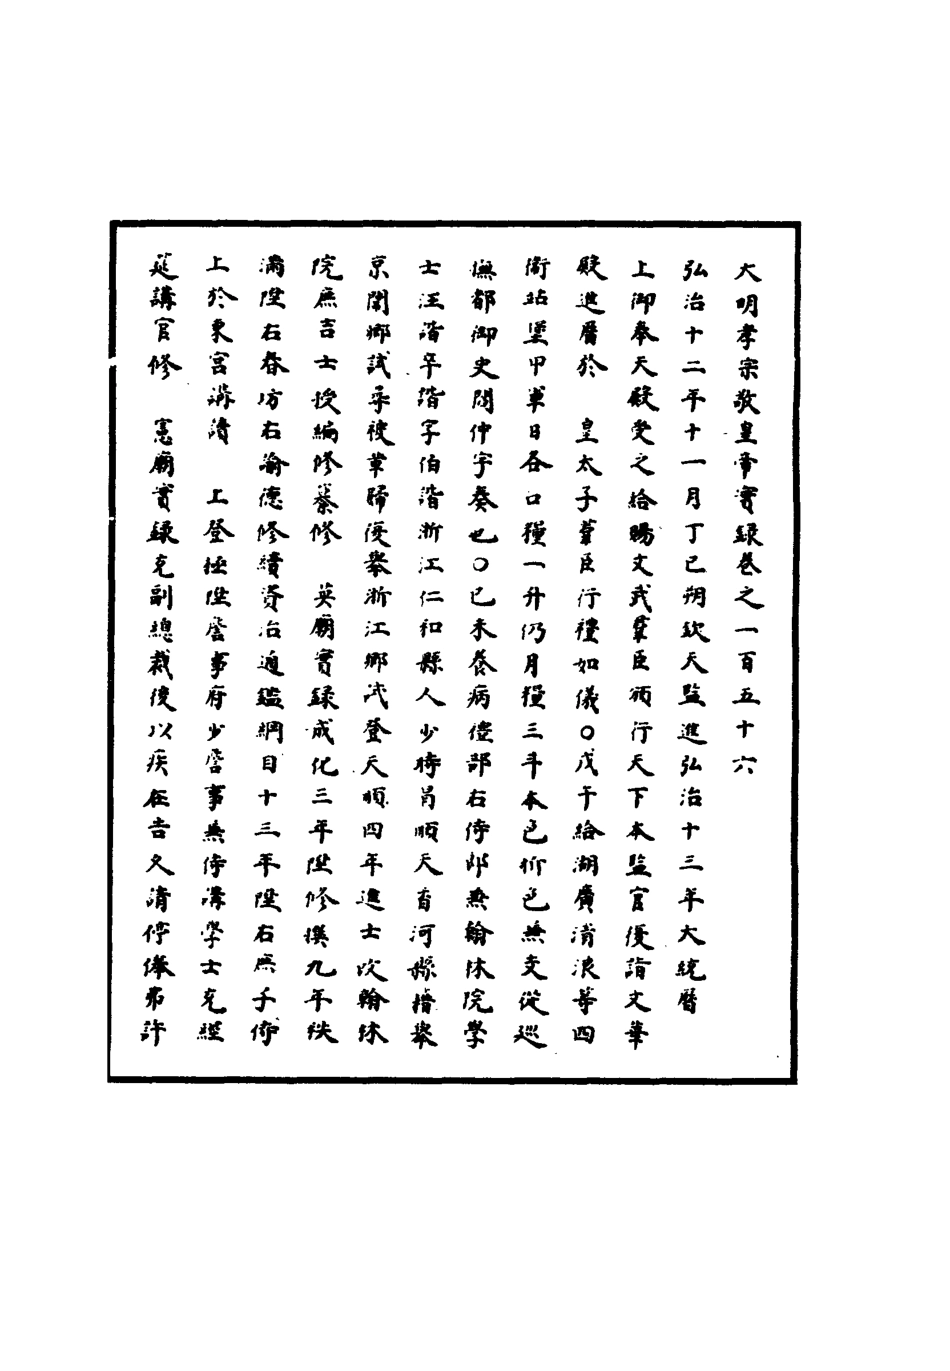 大明孝宗敬皇帝實錄卷之一百五十六
弘治十二年十一月丁巳朔欽天監進弘治十三年大統曆
上御奉天殿受之給賜文武羣臣頒行天下本監官復詣文華
殿進曆於 皇太子羣臣行禮如儀○戊午給湖廣清浪等四
衛站堡甲軍日各口糧一升仍月糧三斗本色折色兼支從巡
撫都御史閻仲宇奏也○己未養病禮部右侍郎兼翰林院學
士汪諧卒諧字伯諧浙江仁和縣人少時冐順天香河縣籍舉
京闈鄉試尋被革歸復舉浙江鄉試登天順四年進士改翰林
院庶吉士授編修纂修 英廟實錄成化三年陞修撰九年秩
滿陞右春坊右諭德修續資治通鑑綱目十三年陞右庶子侍
上於東宮講讀 上登極陞詹事府少詹事兼侍講學士充經
筵講官修 憲廟實錄充副總裁後以疾在告久請停俸弗許